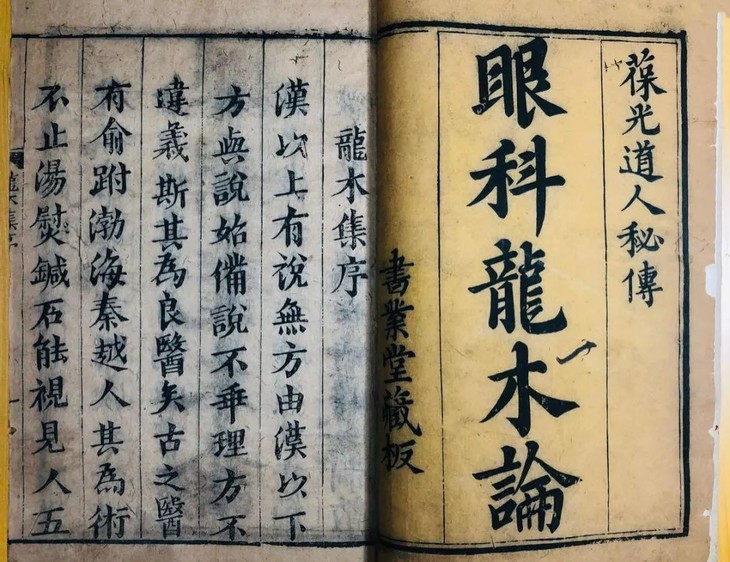 葆光道人秘傳
眼科龍木論
書業堂藏板
龍木集序
漢以上有說無方由漢以下
方與說始備說不乖理方不
違義斯其為良醫矣古之醫
有俞跗渤海秦越人其為術
不止湯熨鍼石能視見人五